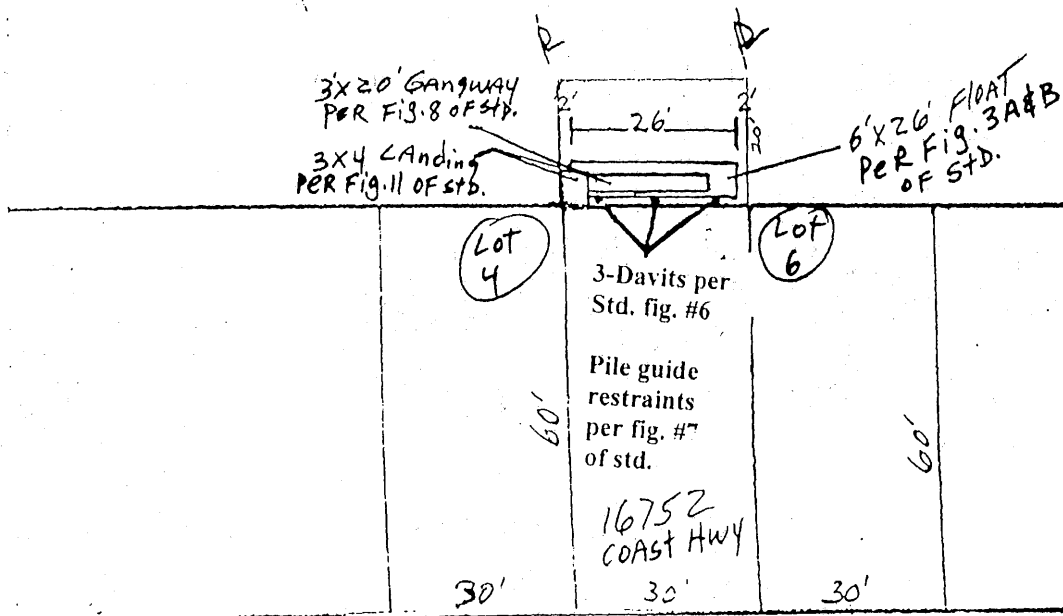 P
P
3'x20' GANGWAY
PER Fig. 8 OF Std.
2'
26'
2'
20'
6'x26' FLOAT
PER Fig. 3A&B
OF STD.
3X4 LAnding
PER Fig. 11 OF std.
Lot
4
Lot
6
3-Davits per
Std. fig. #6
Pile guide
restraints
per fig. #7
of std.
60'
60'
16752
COASt HWY
30'
30'
30'